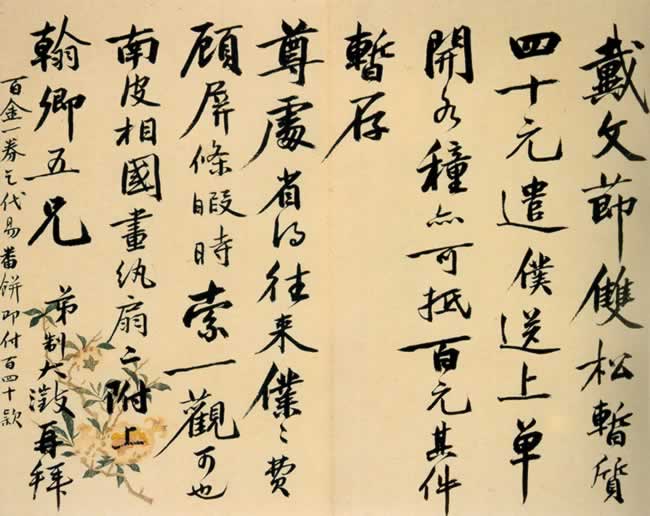 戴文節雙松暫質
四十元遣僕送上單
開各種亦可抵百元其件
暫存
尊處省得往來僕僕費
顧屏條暇時索一觀可也
南皮相國畫紈扇二附上
翰卿五兄 弟制大澂再拜
百金一券乞代易番餅即付百四十款